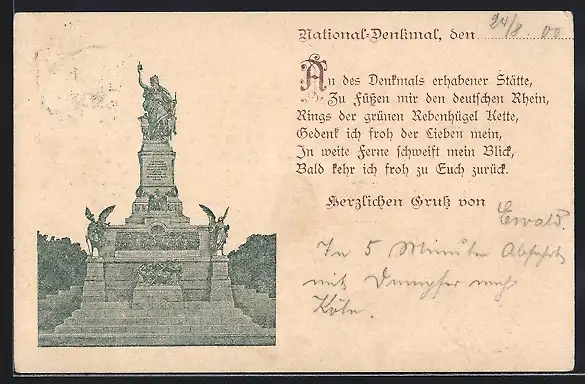 National-Denkmal, den 24/8. 00
An des Denkmals erhabener Stätte,
Zu Füßen mir den deutschen Rhein,
Rings der grünen Rebenhügel Kette,
Gedenk ich froh der Lieben mein,
In weite Ferne schweift mein Blick,
Bald kehr ich froh zu Euch zurück.
Herzlichen Gruß von
Ewald.
In 5 Minuten Abfahrt
mit Dampfer nach
Köln.